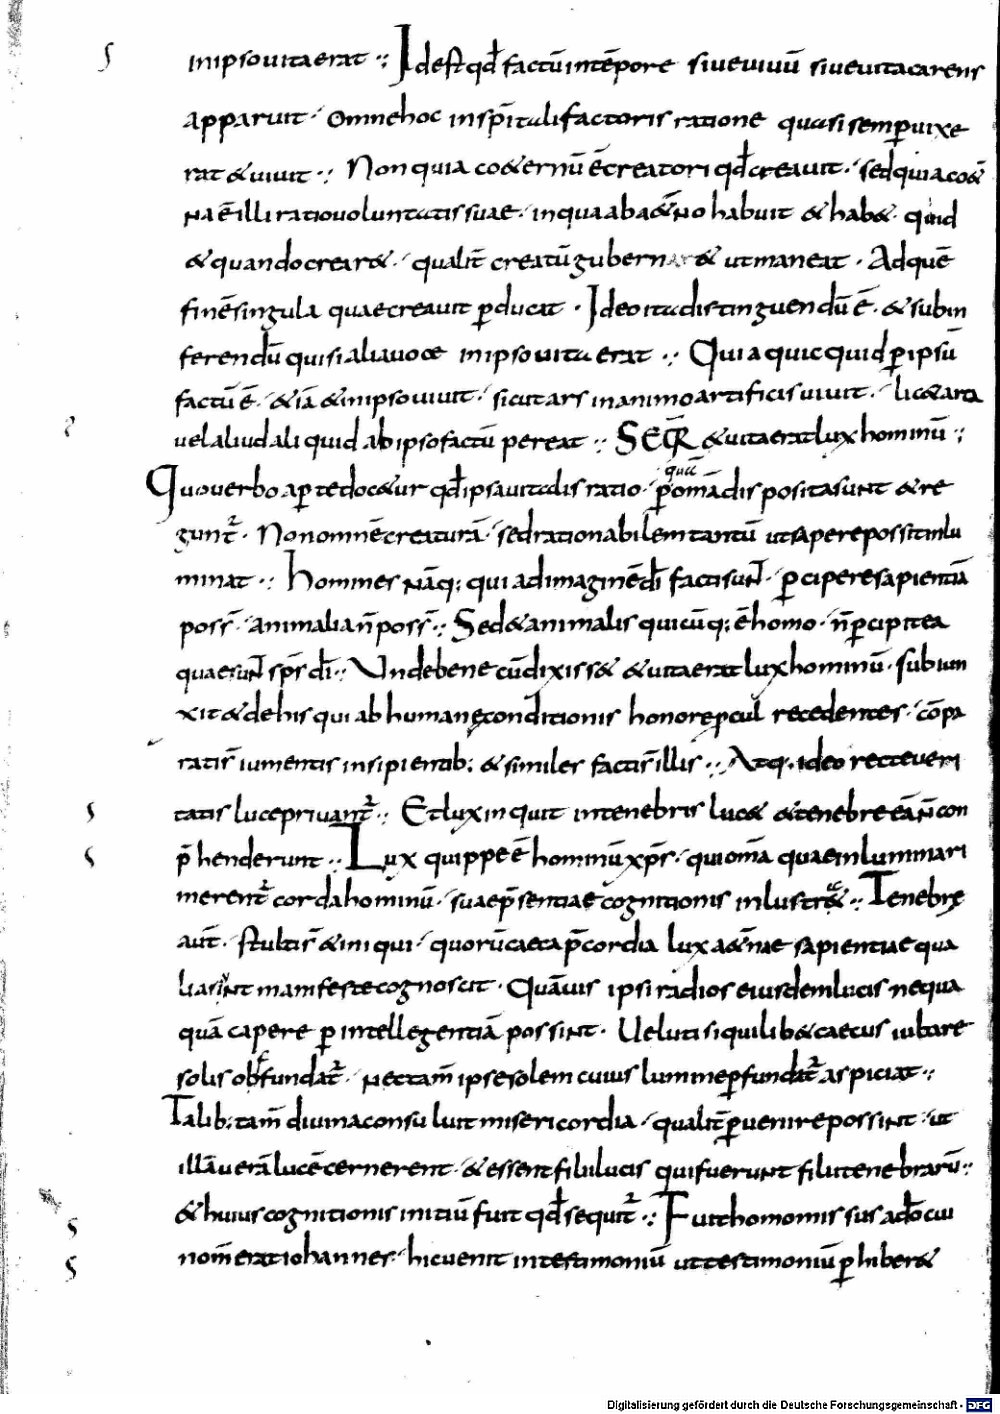 inipso uita erat ·:· Id est qđ factū intēpore siue uiuū siue uita carens
apparuit · omne hoc inspīitali factoris ratione quasi semp̄ uixe
rat & uiuit ·:· Non quia co&ernū ē creatori qđ creauit · sed quia co&
na ē illi ratio uoluntatis suae · in qua ab a&n̄o habuit & hab& · quid
& quando crear& · qualit̄ creatū gubern& ut maneat · Ad quē
finē singula quae creauit p̄ducat · Ideo ita distinguendū ē · & subin
ferendū quisi alia uoce inipso uita erat ·:· Quia quicquid p̄ ipsū
factū ē · &iā & inipso uiuit · sicut ars in animo artificis uiuit · lic& arca
uel aliud aliquid ab ipso factū pereat ·:· SEQR̄ & uita erat lux hominū ·;
Quo uerbo ap̄te doc&ur qđ ipsa uitalis ratio · p̄ quā om̄a disposita sunt & re
gunt̄ · Non omnē creaturā · sed rationabilem tantū ut sapere possit inlu
minat ·:· Homines nāq; qui ad imaginē dī facti sun̄ · p̄cipere sapientiā
poss̄ · animalia n̄ poss̄ ·:· Sed & animalis quicūq; ē homo · n̄ p̄cipit ea
quae sun̄ sp̄s dī ·:· Unde bene cū dixiss& & uita erat lux hominū · subiun
xit & de his qui ab humanę conditionis honore p̄cul recedentes · cōpa
ratis̄ iumentis insipientib; & similes factis̄ illis ·:· Atq; ideo recte ueri
tatis luce priuant̄ ·:· Et lux inquit intenebris luc& & tenebre eā n̄ con
p̄henderunt ·:· Lux quippe ē hominū xp̄s · qui om̄a quae inluminari
merent̄ corda hominū · suae p̄sentiae cognitionis inlustr& ·:· Tenebrę
aut̄ · stultis̄ & iniqui · quorū caeca p̄cordia lux a&n̄ae sapientiae qua
lia sint manifeste cognoscit · Quāuis ipsi radios eiusdem lucis nequa
quā capere p̄ intellegentiā possint · Ueluti si quilib& caecus iubare
solis obfundat̄ · nec tam̄ ipse solem cuius lumine p̄fundat̄ aspiciat ·:·
Talib; tam̄ diuina consuluit misericordia · qualit̄ p̄uenire possint · ut
illā uerā lucē cernerent · & essent filii lucis qui fuerunt filii tenebrarū ·:·
& huius cognitionis initiū fuit qđ sequit̄ ·:· Fuit homo missus ado cui
nom̄ erat iohannes · hic uenit in testimoniū ut testimoniū p̄hiber&
Digitalisierung gefördert durch die Deutsche Forschungsgemeinschaft - DFG